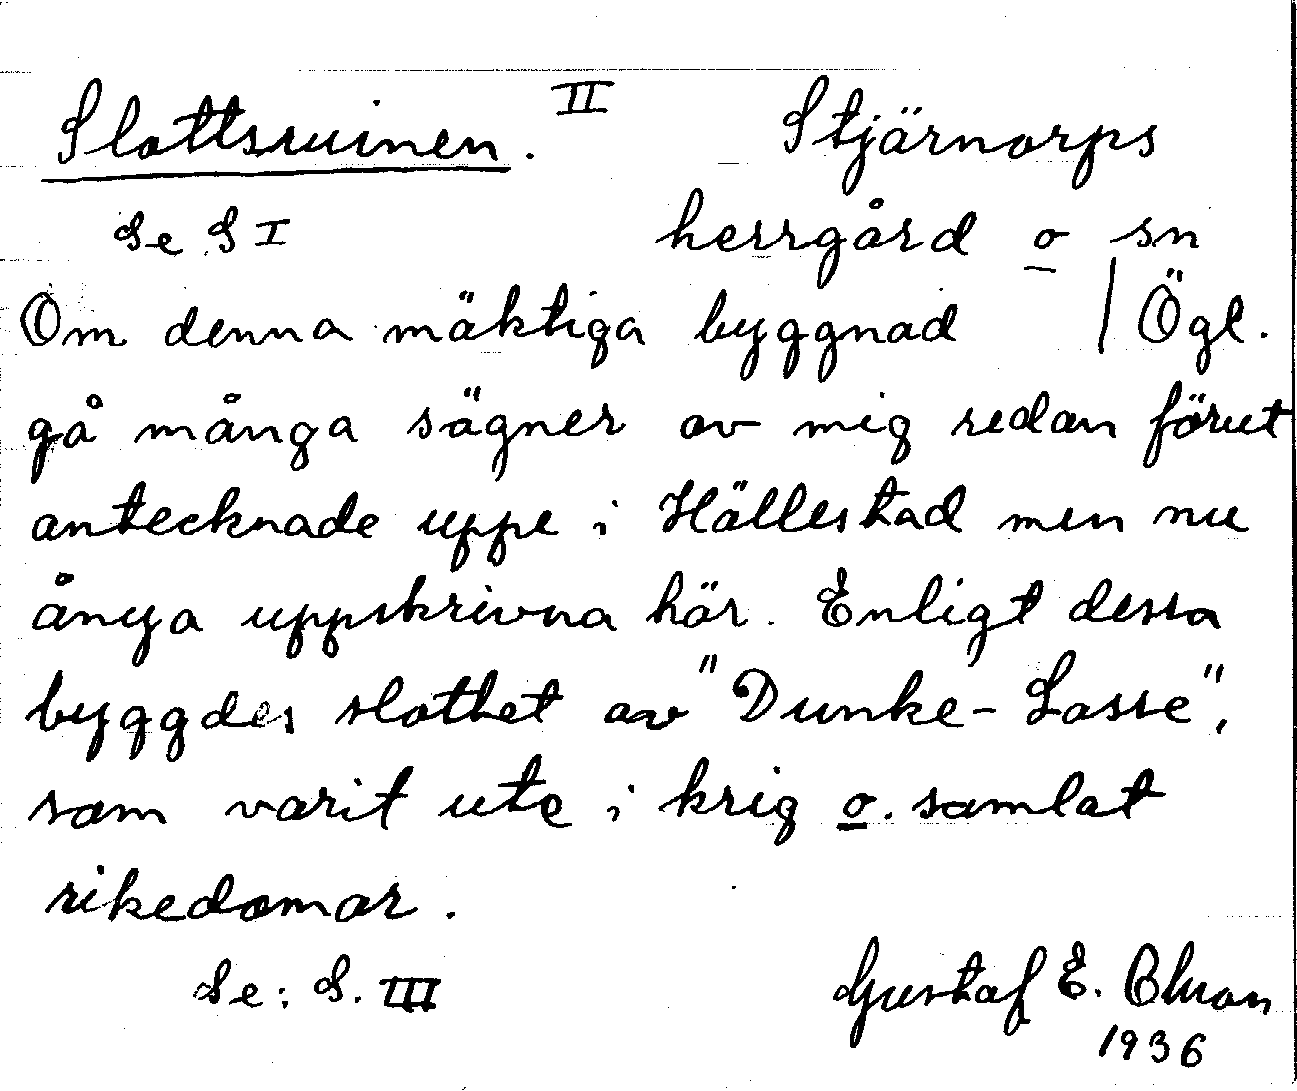 Slottsruinen. II Stjärnorps
Se S I herrgård o sn
Om denna mäktiga byggnad | Ögl.
gå många sägner av mig redan förut
antecknade uppe i Hällestad men nu
ånya uppskrivna här. Enligt dessa
byggdes slottet av "Dunke-Lasse",
som varit ute i krig o. samlat
rikedomar.
Se: S. III Gustaf E.
1936